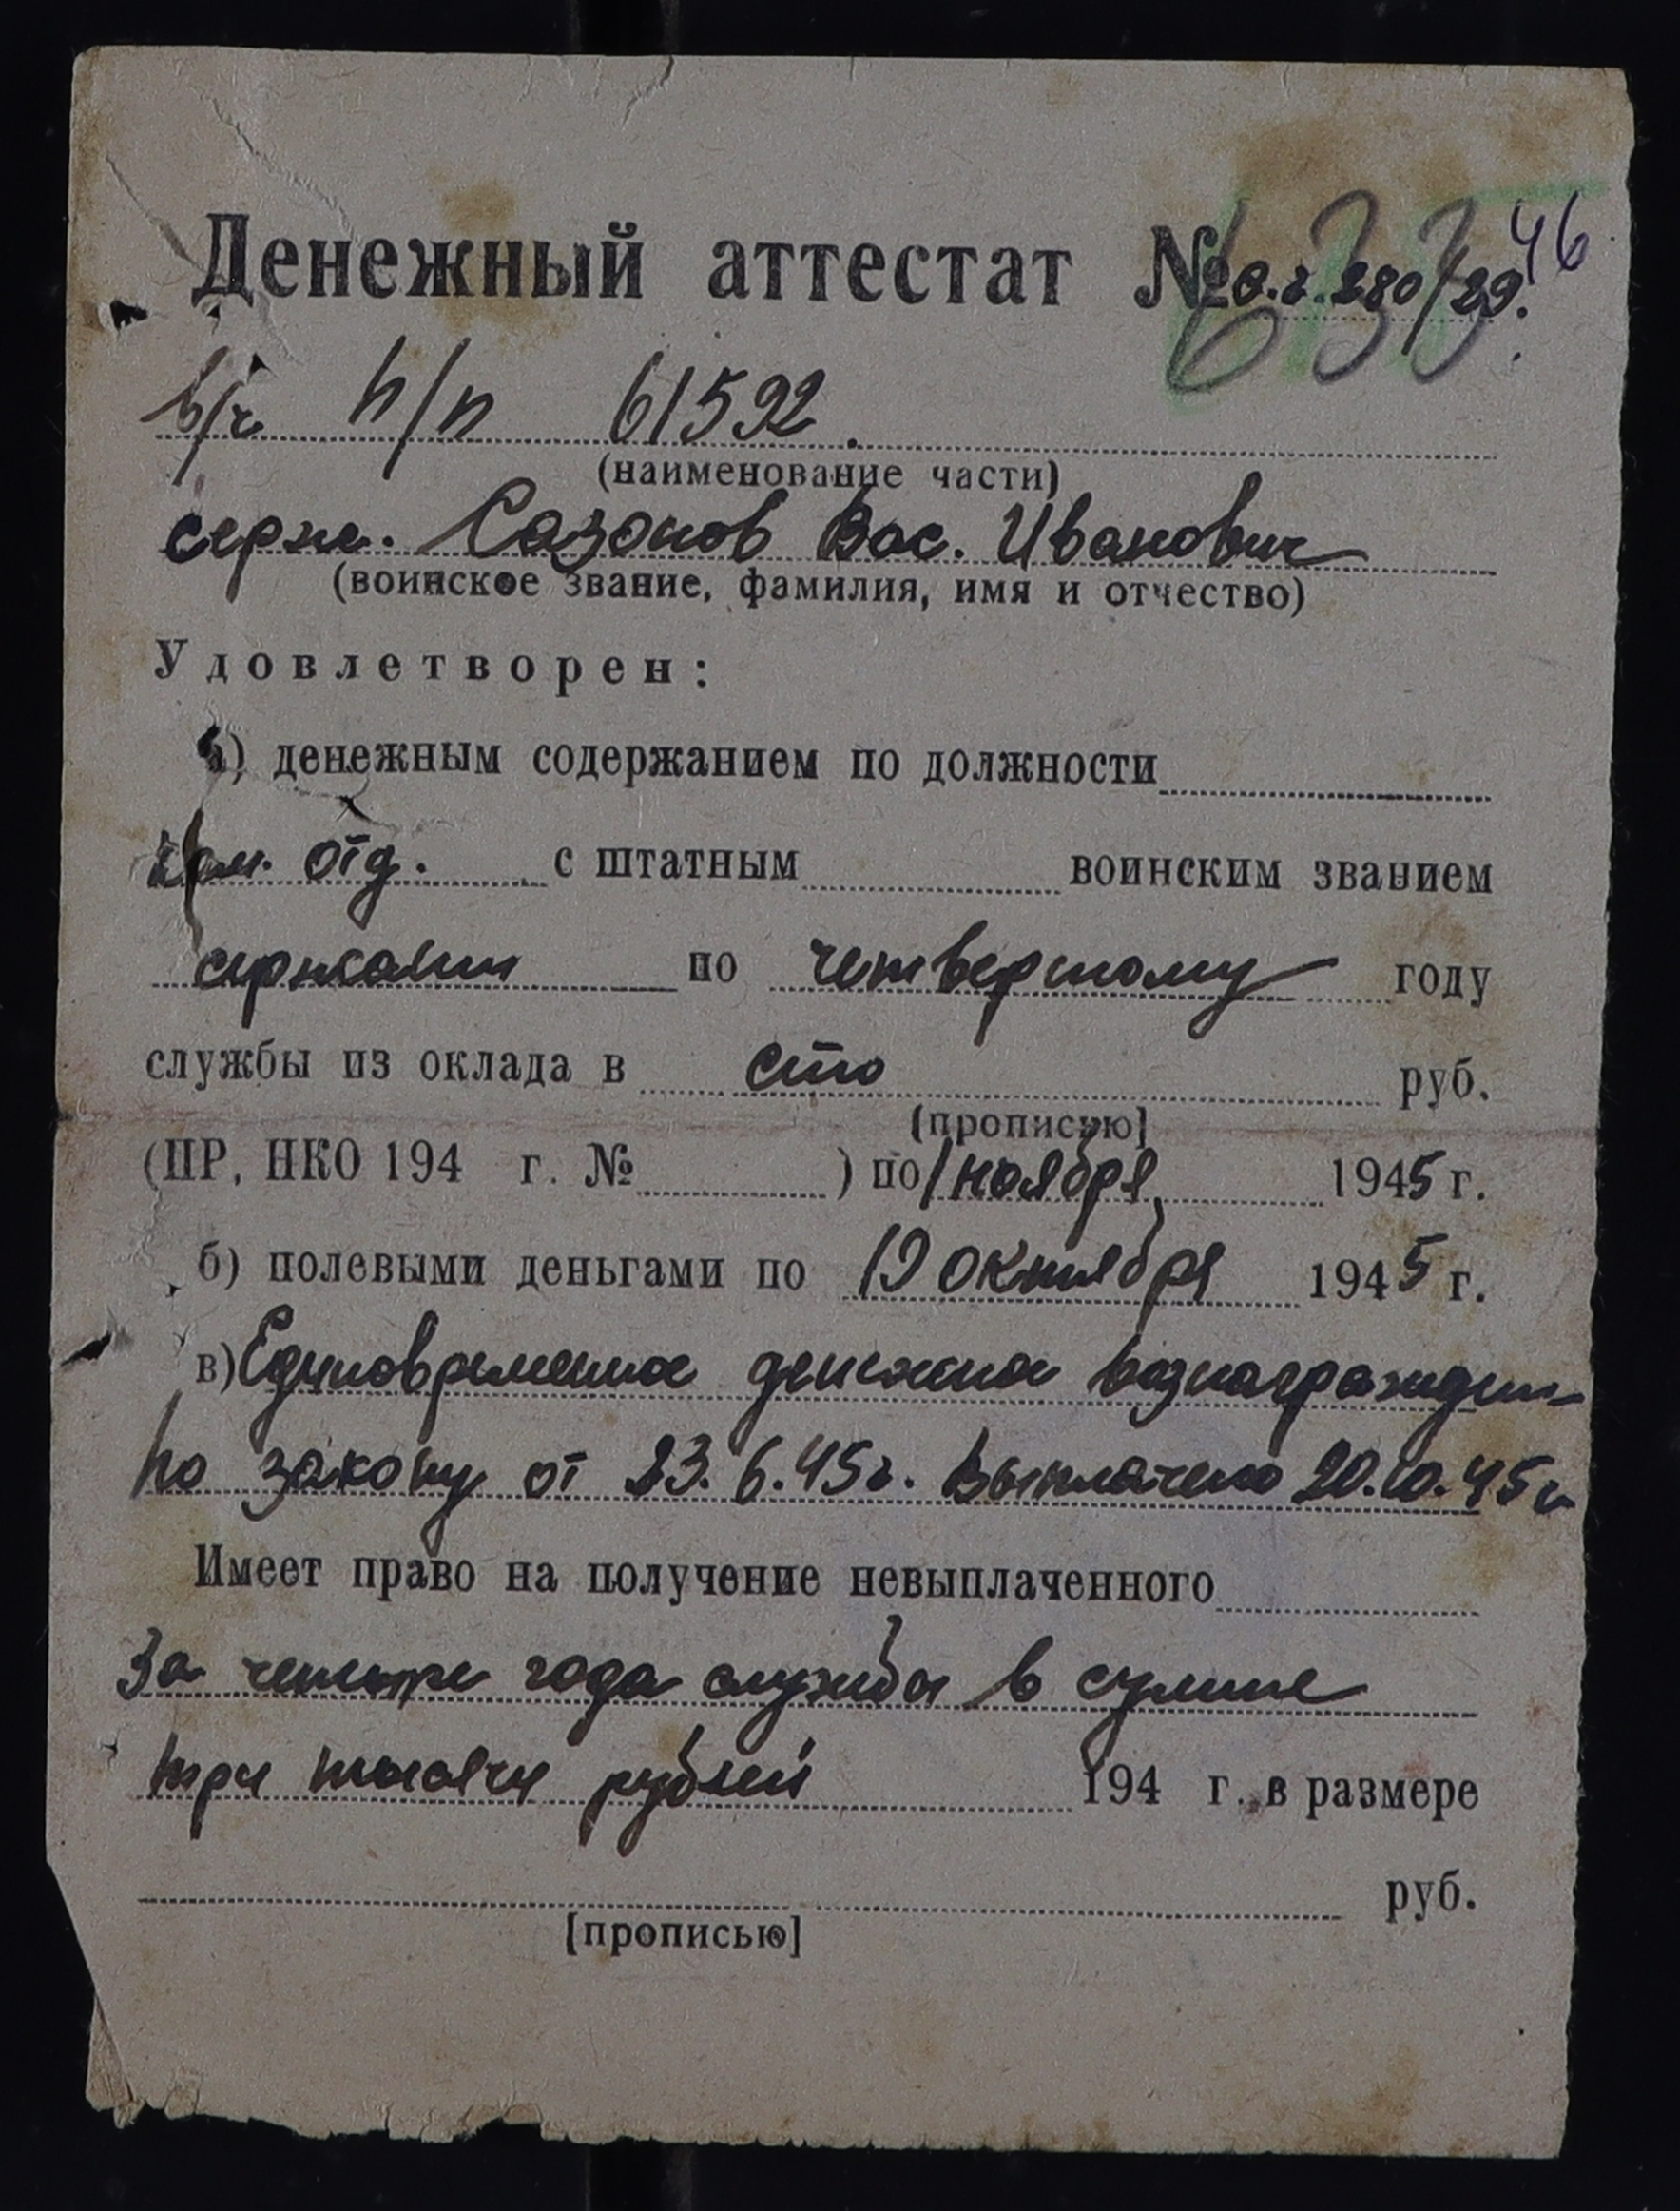 Денежный аттестат № 280/29. 46
в/ч п/п 61592.
(наименование части)
серж. Сазонов Вас. Иванович
(воинское звание, фамилия, имя и отчество)
Удовлетворен:
а) денежным содержанием по должности
Ком. отд. с штатным воинским званием
сержант по четвертому году
службы из оклада в сто руб.
[прописью]
(ПР, НКО 194 г. № ) по 1 ноября 1945 г.
б) полевыми деньгами по 19 октября 1945 г.
в) Единовременное денежное вознагражден
по закону от 23.6.45г. выплачено 20.10.45г
Имеет право на получение невыплаченного
За четыре года службы в сумме
три тысячи рублей 194 г. в размере
руб.
[прописью]